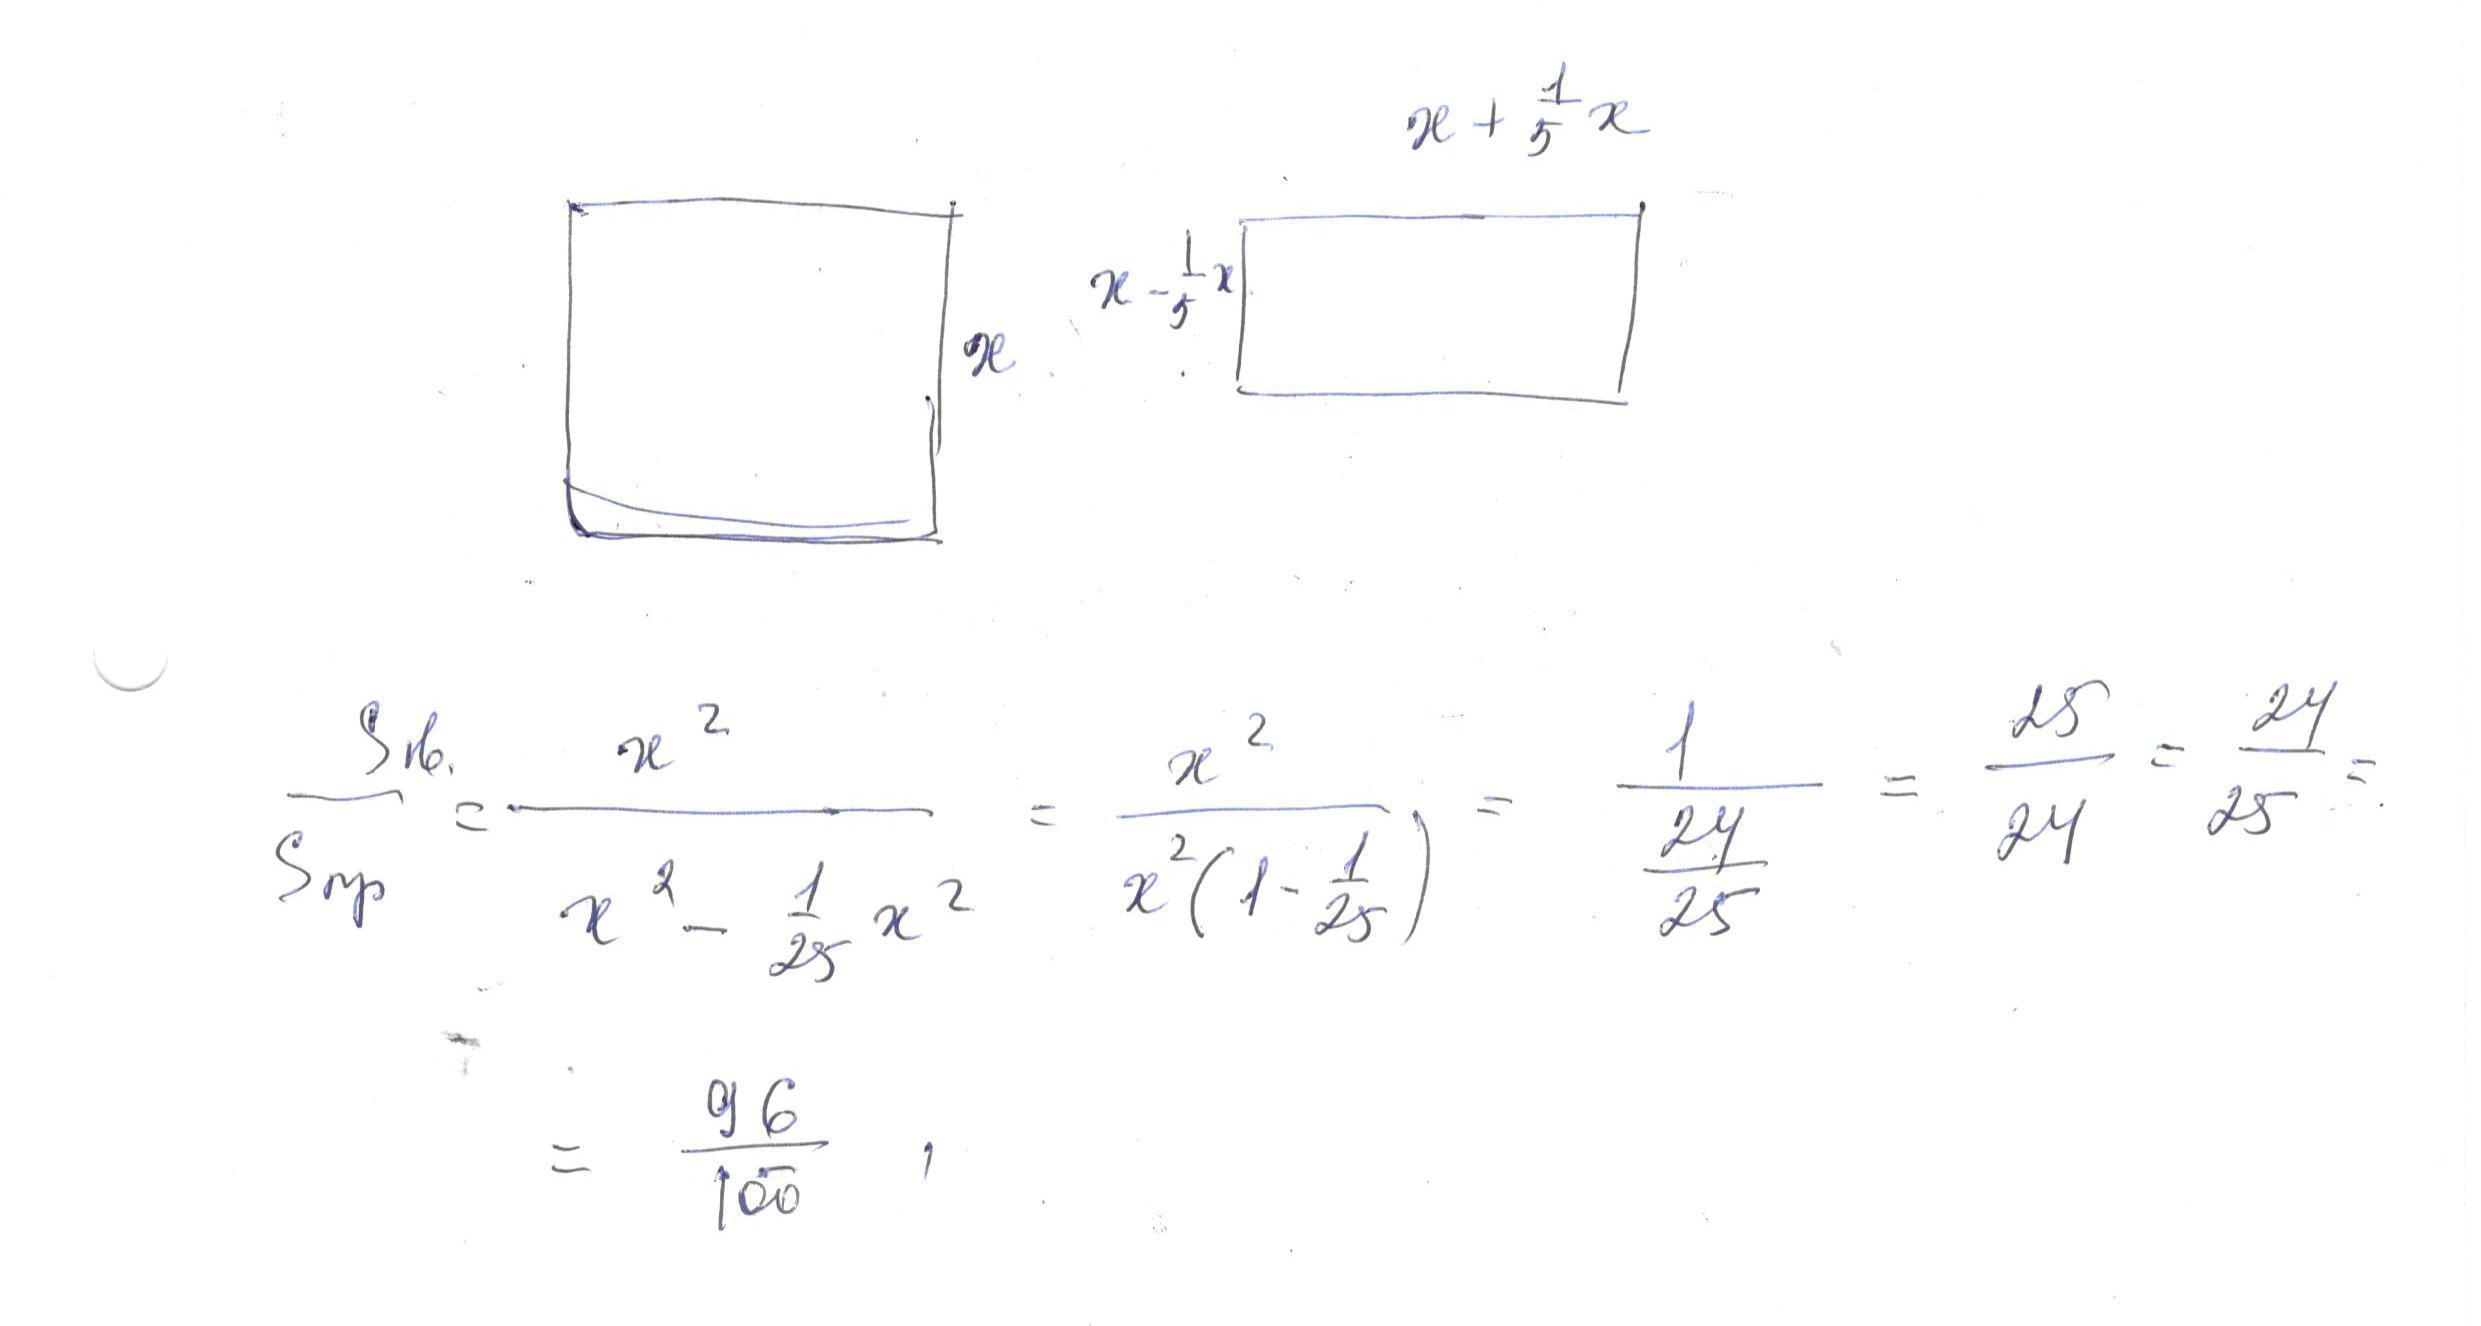 x + 1/5 x
x - 1/5 x
x
Sкв. / Sпр = x² / (x² - 1/25 x²) = x² / (x²(1 - 1/25)) = 1 / (24/25) = 25/24 = 24/25 =
= 96/100 ,